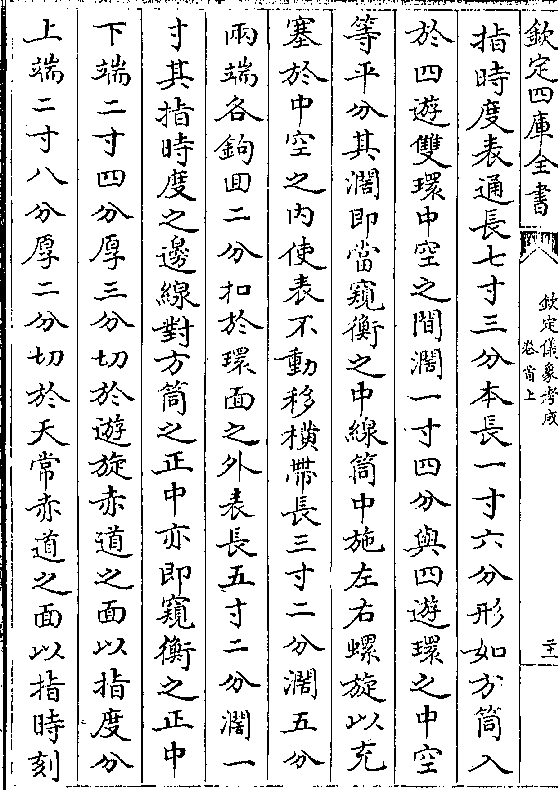 欽定四庫全書
欽定儀象考成
卷首上
二十一
指時度表通長七寸三分本長一寸六分形如方筒入
於四遊雙環中空之間濶一寸四分與四遊環之中空
等平分其濶即當窺衡之中線筒中施左右螺旋以充
塞於中空之内使表不動移横帶長三寸二分濶五分
兩端各鉤回二分扣於環面之外表長五寸二分濶一
寸其指時度之邊線對方筒之正中亦即窺衡之正中
下端二寸四分厚三分切於遊旋赤道之面以指度分
上端二寸八分厚二分切於天常赤道之面以指時刻